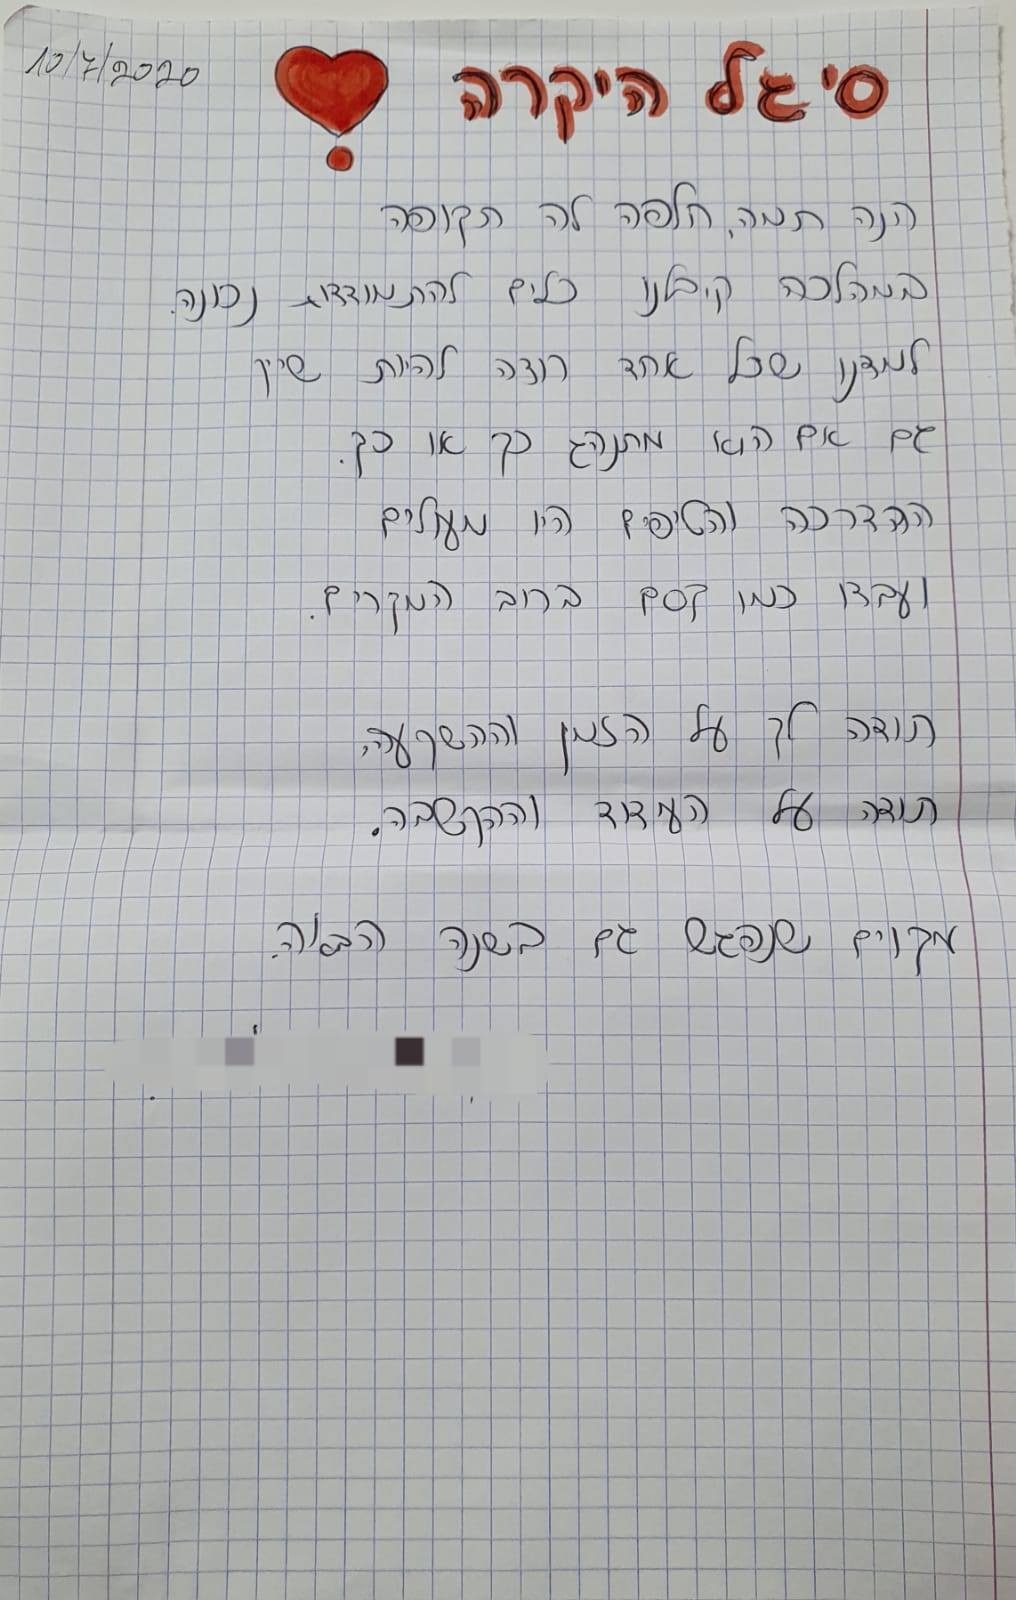 10/7/2020
סיגל היקרה
הנה תמה, חלפה לה תקופה
במהלכה קיבלנו כלים להתמודדות נכונה.
למדנו שכל אחד רוצה להיות שייך
גם אם הוא מתנהג כך או כך.
ההדרכה והטיפים היו מעולים
ועבדו כמו קסם ברוב המקרים.
תודה לך על הזמן וההשקעה,
תודה על העידוד וההקשבה.
מקוים שנפגש גם בשנה הבאה.